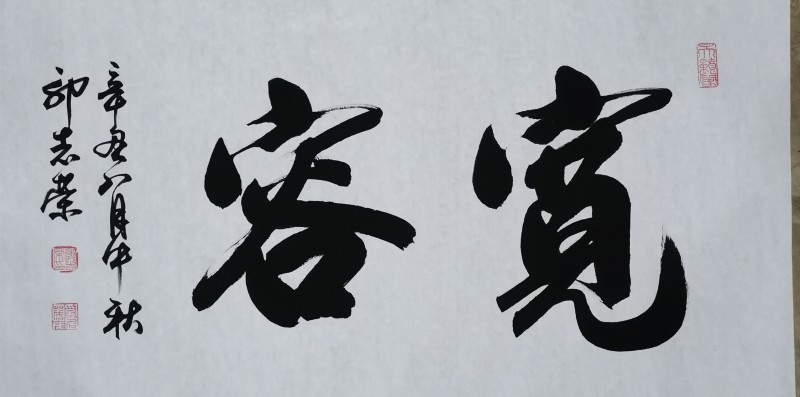 寬容
辛丑八月中秋
志榮